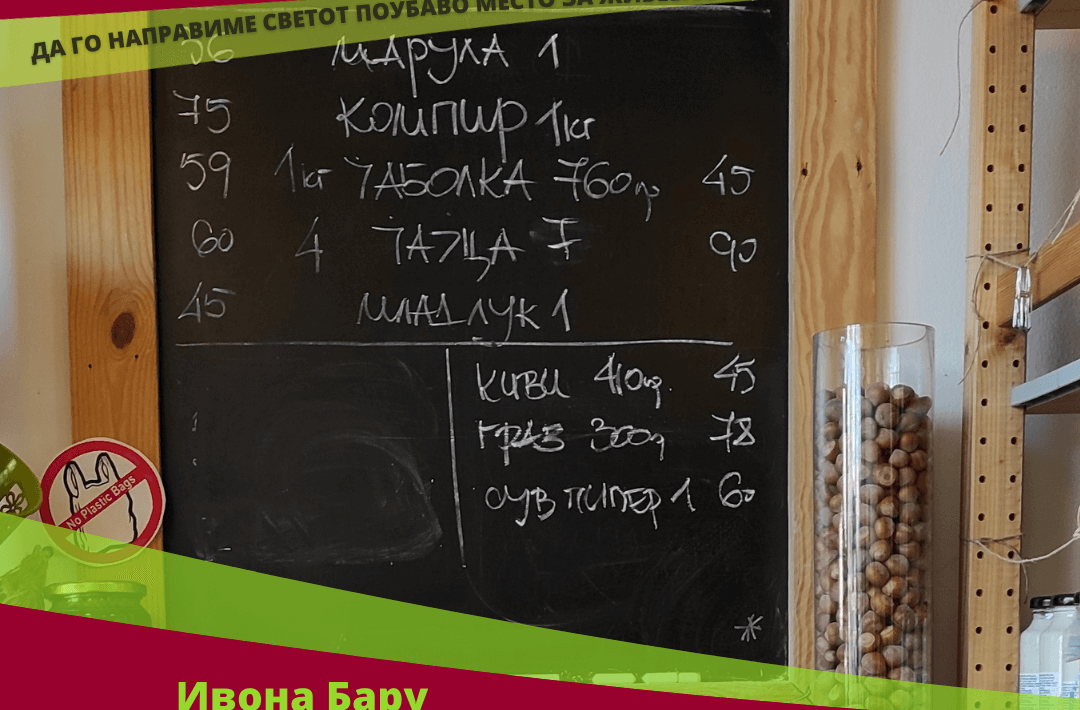 ДА ГО НАПРАВИМЕ СВЕТОТ ПОУБАВО МЕСТО ЗА
36 МАРУЛА 1
75 КОМПИР 1кг
59 1кг ЈАБОЛКА 760гр 45
60 4 ЈАЈЦА 7 90
45 МЛАД ЛУК 1
КИВИ 410гр. 45
ГРАВ 300г 78
СУВ ПИПЕР 1 60
No Plastic Bags
Ивона Бару